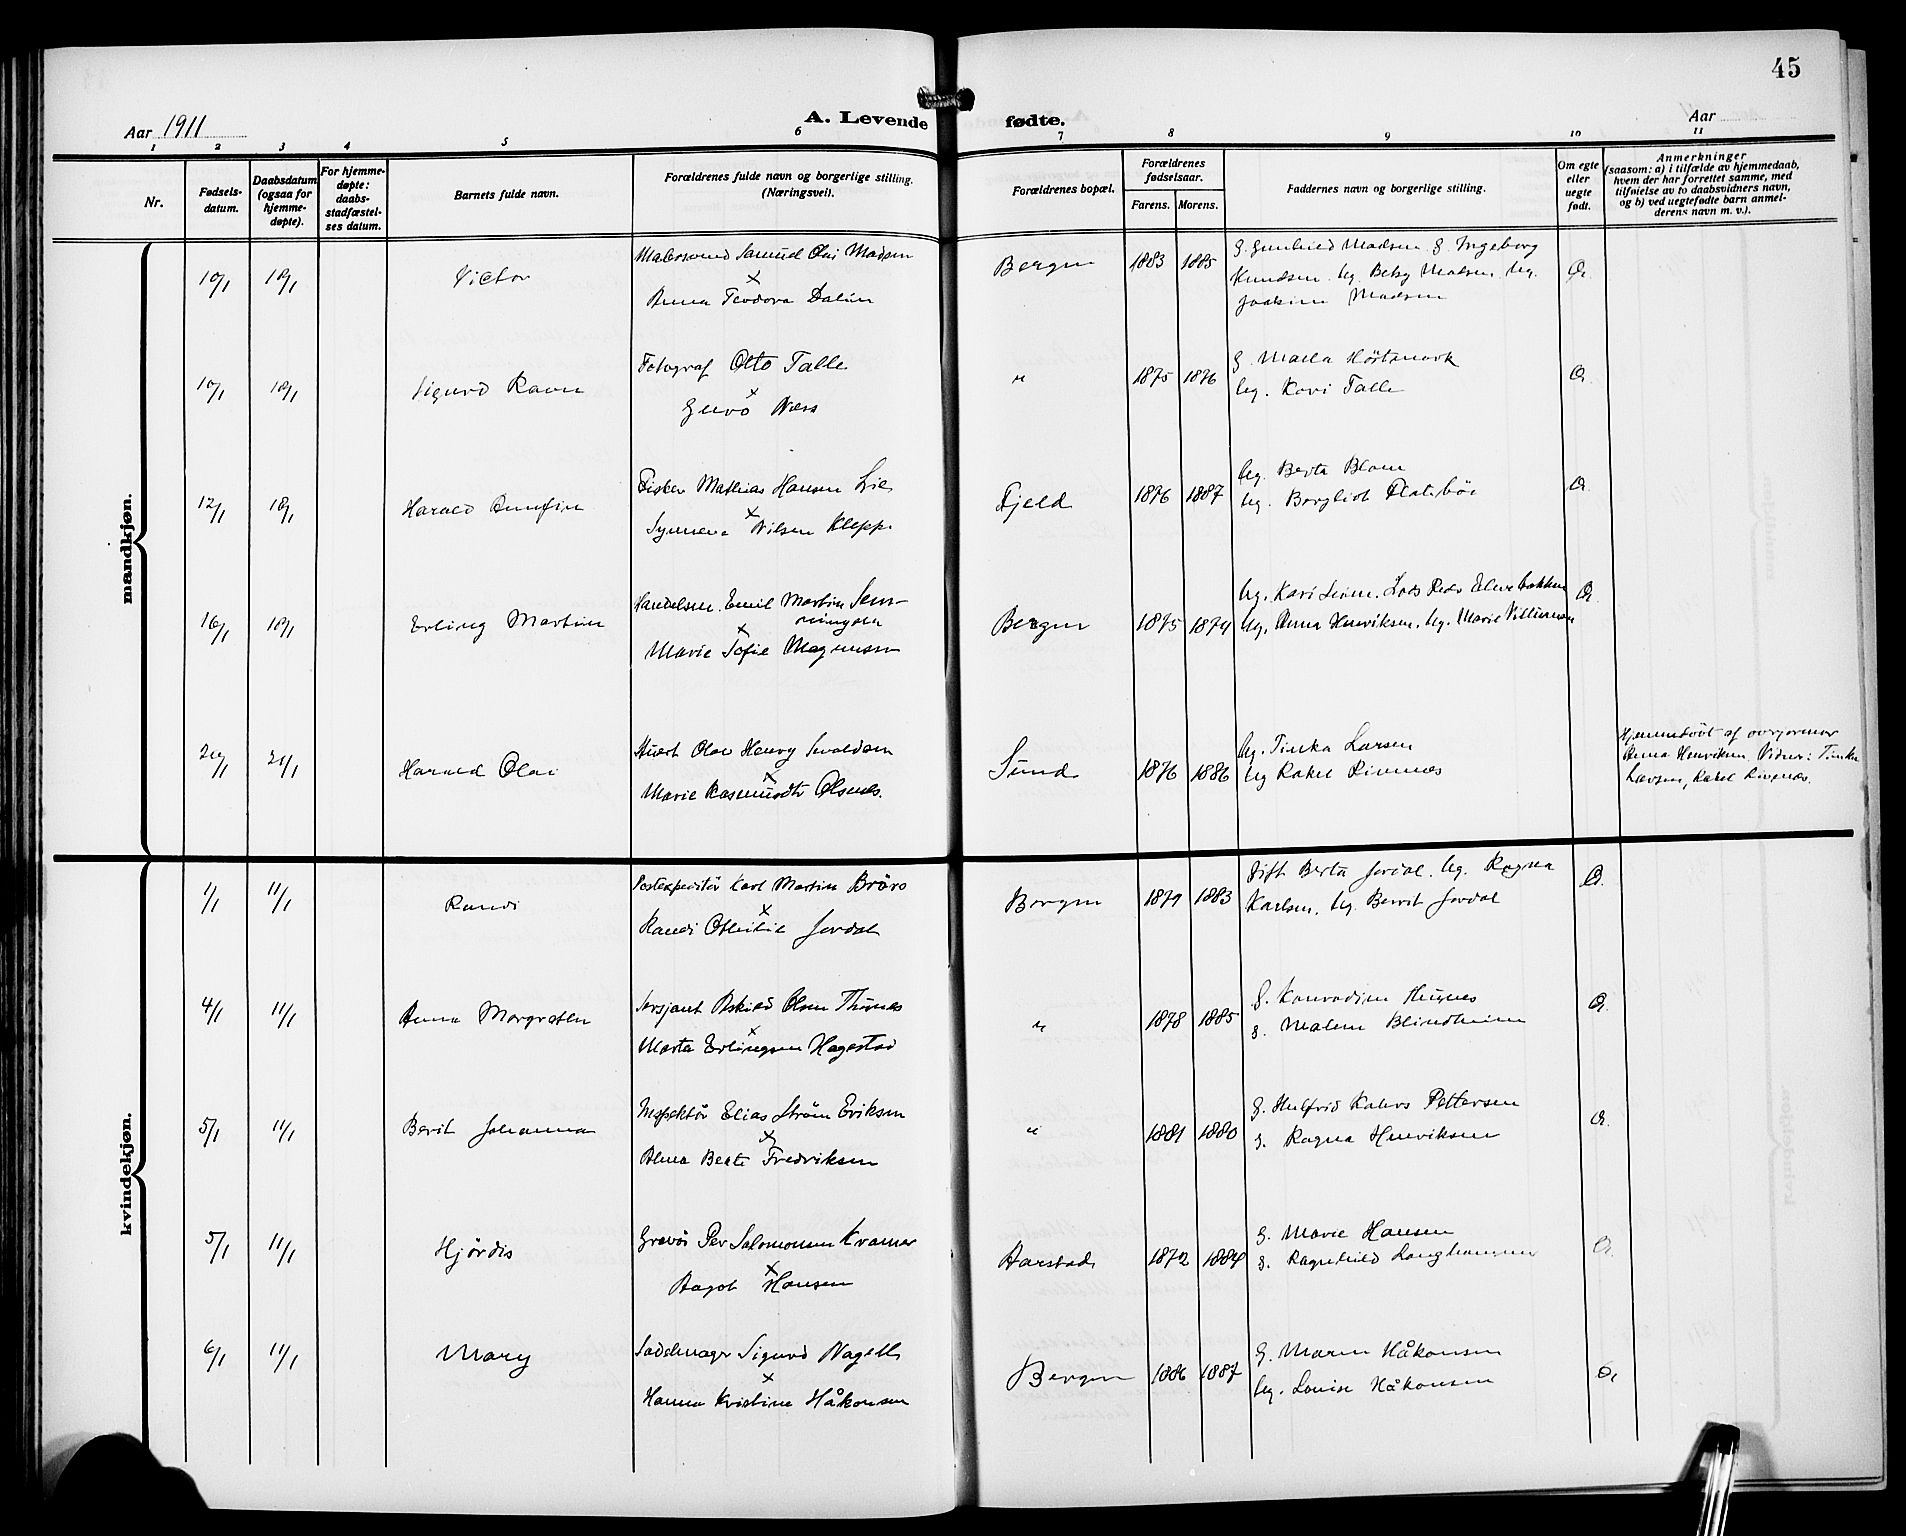 45
Aar 1911
A. Levende
fødte.
Aar
1 2 3 4 5 6 7 8 9 10 11
Nr.
Fødsels-
datum.
Daabsdatum
(ogsaa for
hjemme-
døpte).
For hjemme-
døpte:
daabs-
stadfæstel-
ses datum.
Barnets fulde navn.
Forældrenes fulde navn og borgerlige stilling.
(Næringsvei).
Forældrenes bopæl.
Forældrenes
fødselsaar.
Farens. Morens.
Faddernes navn og borgerlige stilling.
Om egte
eller
uegte
født.
Anmerkninger
(saasom: a) i tilfælde av hjemmedaab,
hvem der har forrettet samme, med
tilføielse av to daabsvidners navn,
og b) ved uegtefødte barn anmel-
derens navn m. v.).
mandkjøn.
10/1 18/1 Victor
Malersvend Samuel Olai Madsen
x
Anna Teodora Dalin
Bergen 1883 1885
Madsen G. Ingeborg
Knudsen. Ug. Betsy Madsen. Ug.
Joakim Madsen
10/1 18/1 Sigurd Ravn
Fotograf Otto Talle
x
Næss
" 1875 1876
G. Marta
Ug. Kari Talle
12/1 18/1 Harald
Fisker Mathias Hansen Lie
x
Synneva Nilsen Kleppe
Fjeld 1876 1887
Ug. Berta Blom
Ug. Borgliot
16/1 18/1 Erling Martin
Handelsm. Emil Martin Sem-
mingsen
x
Marie Sofie Magnussen
Bergen 1875 1874
Ug. Kari
Ug. Anna Henriksen, Ug. Marie
20/1 21/1 Harald Olai
Olav Henry Sevaldsen
x
Marie Rasmusdtr Olsnes.
Sund 1876 1886
Ug. Tinka Larsen
Ug Rakel
Hjemmedøbt af
Anna Henriksen. Vidner: Tinka
Larsen, Rakel
kvindekjøn.
1/1 11/1 Randi
Postexpeditør Karl Martin
x
Randi Jordal
Bergen 1879 1883
Gift Berta Jordal. Ug. Ragna
Karlsen, Ug. Berit Jordal
4/1 11/1 Anna Margrethe
Sersjant Askild Olsen
x
Marta Erlingsen Hagestad
" 1878 1885
G. Konradine
G. Malene Blindheim
5/1 11/1 Berit Johanna
Inspektör Elias Ström Eriksen
x
Alma Beate Fredriksen
" 1881 1880
G. Pettersen
G. Ragna Henriksen
5/1 11/1 Hjördis
Gravör Per Salomonsen Kramer
x
Dagot Hansen
Harstad 1872 1884
G. Marie Hansen
G. Ragnhild Langhammer
6/1 11/1 Mary
Sadelmager Sigurd Nagell
x
Hanna Kristine Håkonsen
Bergen 1886 1887
G. Maren Håkonsen
Ug. Louise Håkonsen